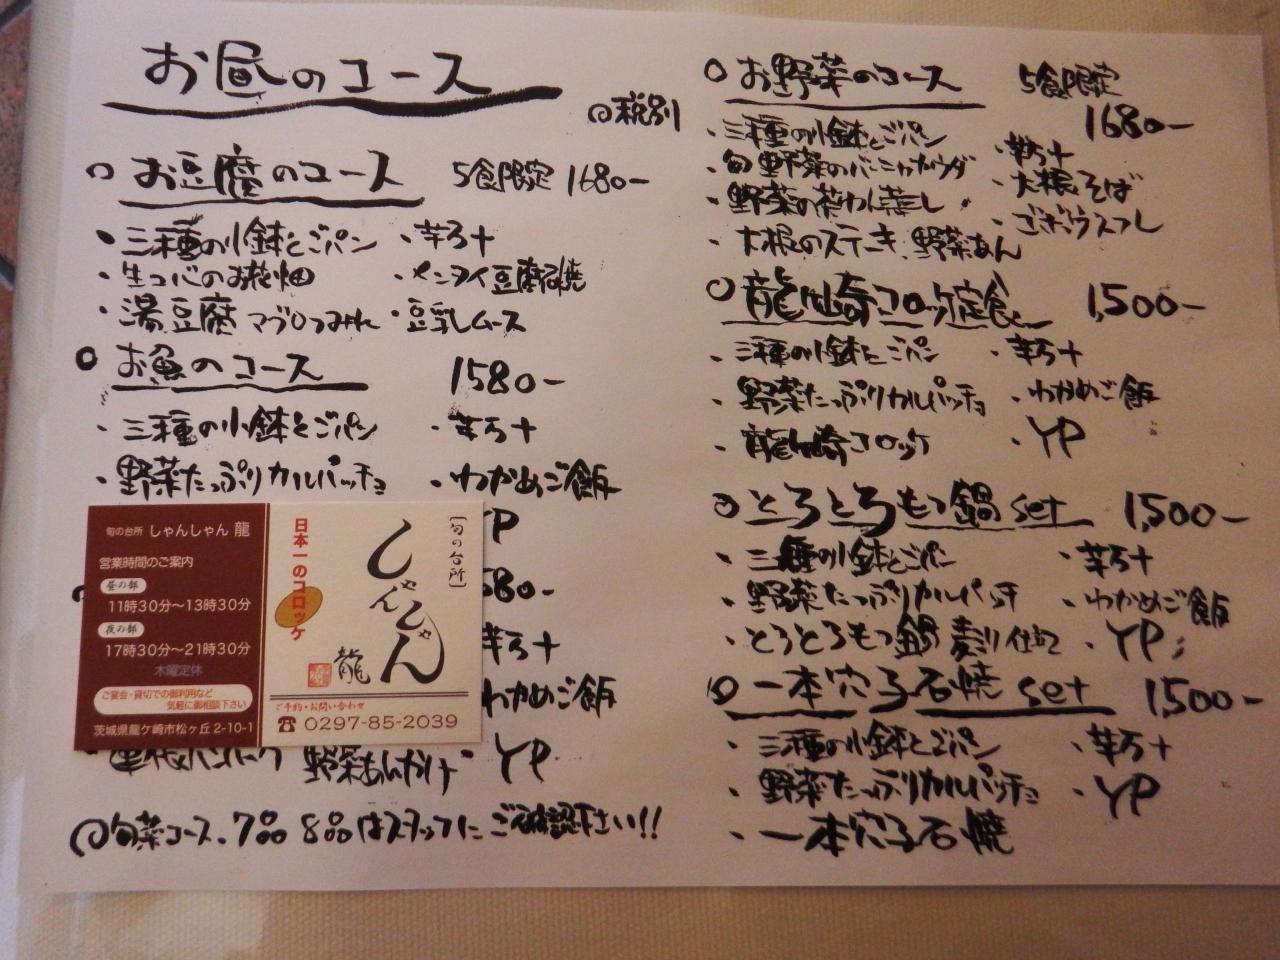 お昼のコース
◎税別
○お豆腐のコース 5食限定 1680-
・三種の小鉢とごパン ・芋万十
・生ゆばのお花畑 ・メンタイ豆腐石焼
・湯豆腐 マグロつみれ ・豆乳ムース
○お魚のコース 1580-
・三種の小鉢とごパン ・芋万十
・野菜たっぷりカルパッチョ ・わかめご飯
YP
580-
芋万十
わかめご飯
野菜あんかけ YP
◎旬菜コース、7品 8品はスタッフにご確認下さい!!
旬の台所 しゃんしゃん 龍
営業時間のご案内
昼の部
11時30分〜13時30分
夜の部
17時30分〜21時30分
木曜定休
ご宴会・貸切での御利用など
気軽に御相談下さい
茨城県龍ケ崎市松ヶ丘2-10-1
[旬の台所]
しゃんしゃん
龍
日本一のコロッケ
ご予約・お問い合わせ
☎0297-85-2039
○お野菜のコース 5食限定
1680-
・三種の小鉢とごパン ・芋万十
・旬野菜のバーニャカウダ ・大根そば
・野菜の茶わん蒸し ・ごぼうスフレ
・大根のステーキ 野菜あん
○龍ヶ崎コロッケ定食 1,500-
・三種の小鉢とごパン ・芋万十
・野菜たっぷりカルパッチョ ・わかめご飯
・龍ヶ崎コロッケ ・YP
○とろとろもつ鍋 set 1,500-
・三種の小鉢とごパン ・芋万十
・野菜たっぷりカルパッチ ・わかめご飯
・とろとろもつ鍋 仕立て ・YP
○一本穴子石焼 set 1,500-
・三種の小鉢とごパン ・芋万十
・野菜たっぷりカルパッチョ ・YP
・一本穴子石焼